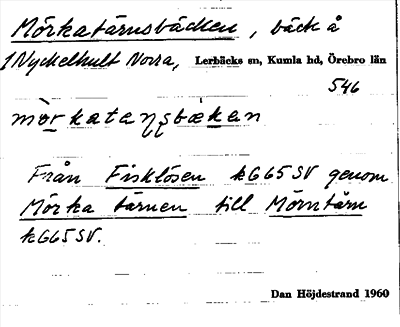 Mörkatärnsbäcken, bäck å
1 Nyckelhult Norra, Lerbäcks sn, Kumla hd, Örebro län
546
Från Fisklösen kG65SV genom
Mörka tärnen till Mörntärn
kG65SV.
Dan Höjdestrand 1960